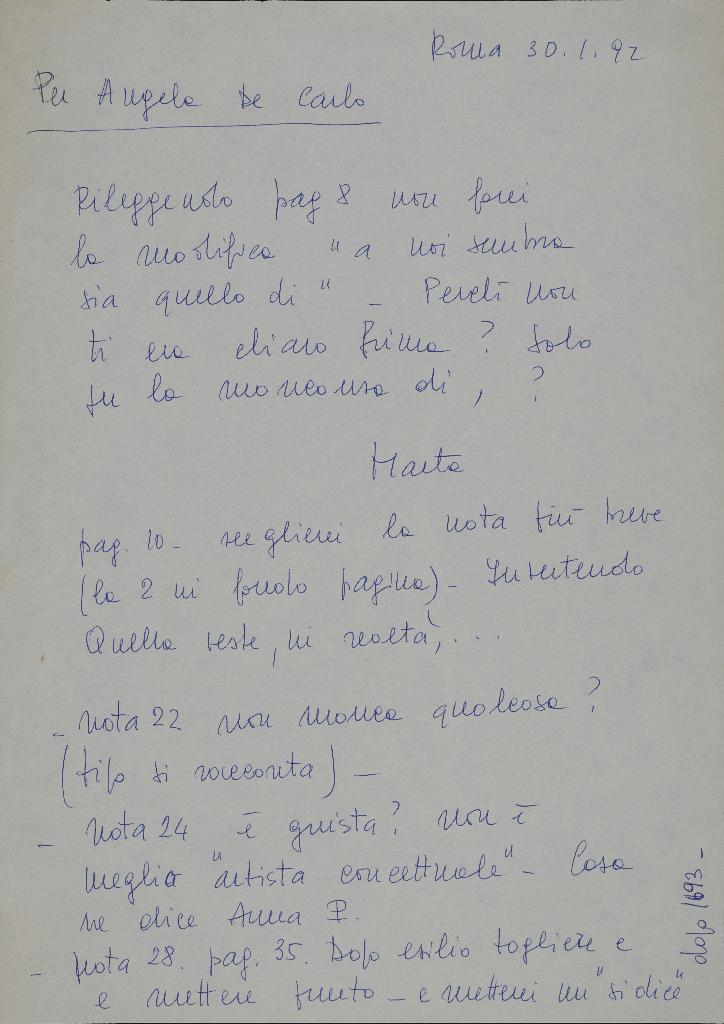 Roma 30.1.92
Per Angela De Carlo
Rileggendo pag 8 non farei
la modifica "a noi sembra
sia quello di" - Perché non
ti era chiaro prima? Solo
su la mancanza di , ?
Marta
pag. 10 - sceglierei la nota più breve
(la 2 in fondo pagina) - Insertendo
Quella veste, in realtà, ...
- nota 22 non manca qualcosa?
(tipo si racconta) -
- nota 24 è giusta? non è
meglio "artista concettuale" - Cosa
ne dice Anna P.
- nota 28. pag. 35. Dopo esilio togliere e
e mettere punto - e metterei un "si dice"
dopo 1693 -